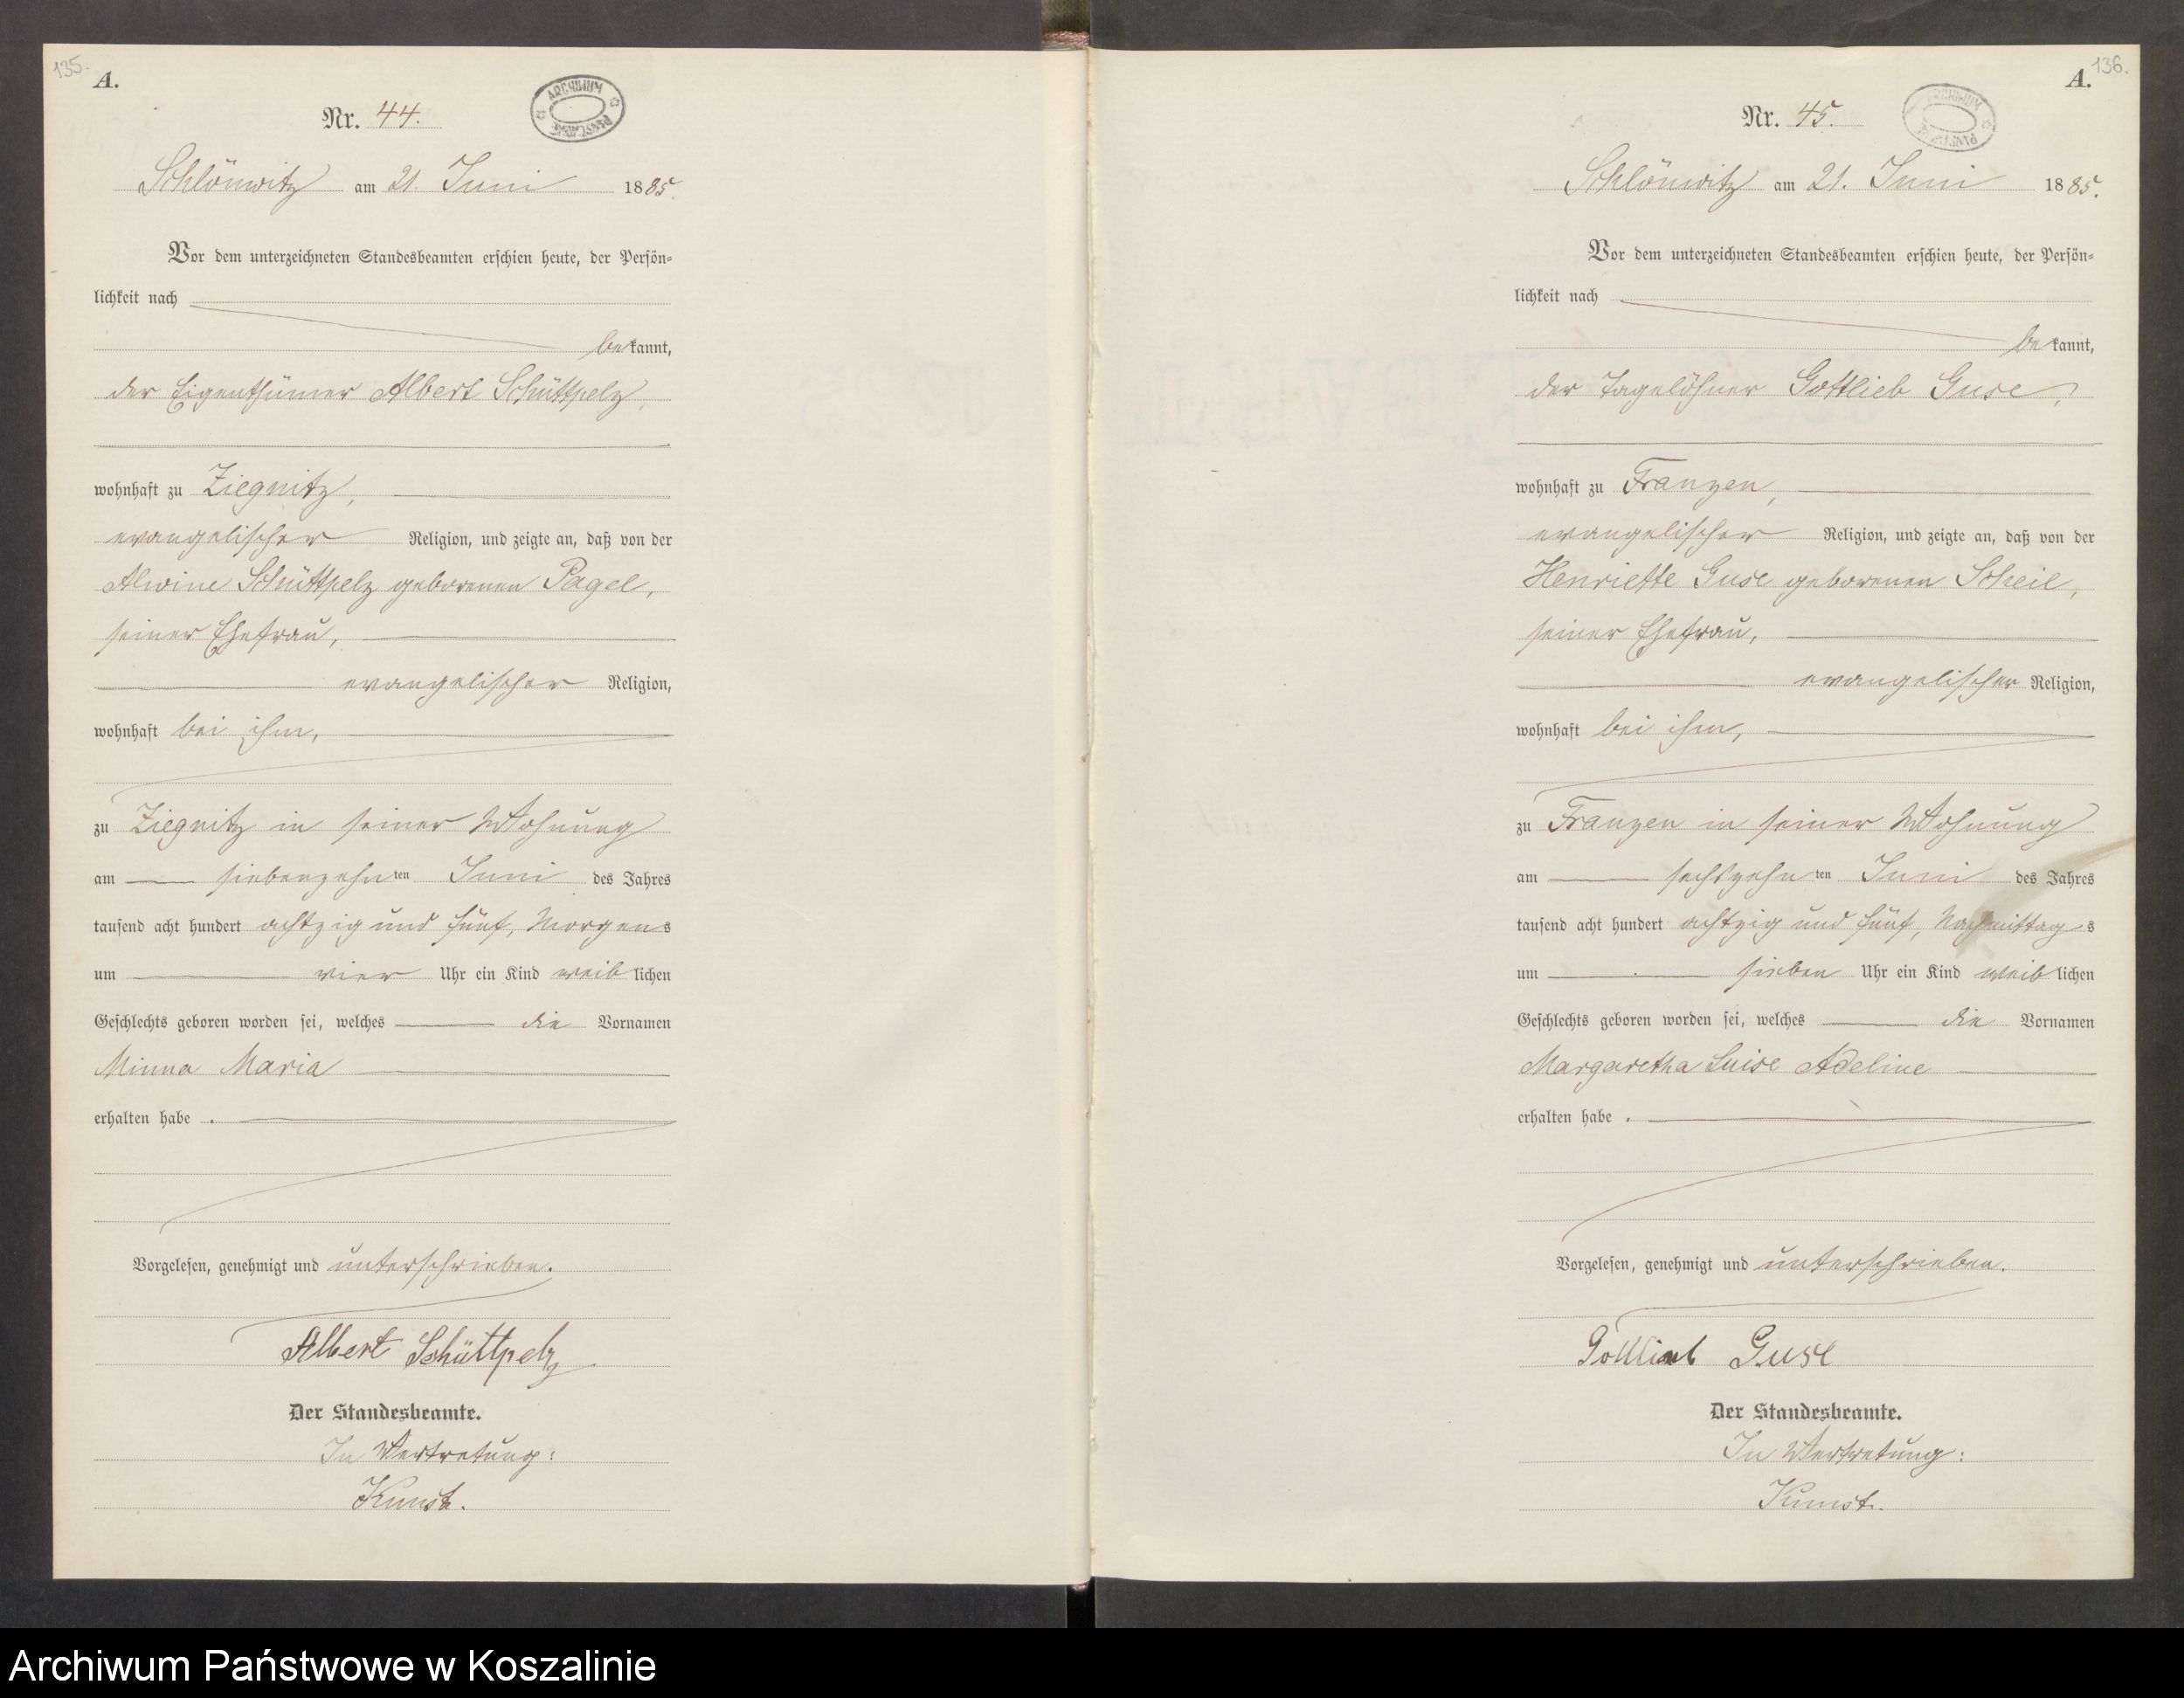 135.
A.
ARCHIWUM PAŃSTWOWE
Nr. 44.
Schlönwitz am 21. Juni 1885.
Vor dem unterzeichneten Standesbeamten erschien heute, der Persön=
lichkeit nach
bekannt,
der Eigenthümer Albert Schüttpelz,
wohnhaft zu Ziegnitz,
evangelischer Religion, und zeigte an, daß von der
Alwine Schüttpelz geborenen Pagel,
seiner Ehefrau,
evangelischer Religion,
wohnhaft bei ihm,
zu Ziegnitz in seiner Wohnung
am siebenzehnten Juni des Jahres
tausend acht hundert achtzig und fünf, Morgens
um vier Uhr ein Kind weiblichen
Geschlechts geboren worden sei, welches die Vornamen
Minna Maria
erhalten habe.
Vorgelesen, genehmigt und unterschrieben.
Albert Schüttpelz
Der Standesbeamte.
In Vertretung:
Kunst.
136.
A.
ARCHIWUM PAŃSTWOWE
Nr. 45.
Schlönwitz am 21. Juni 1885.
Vor dem unterzeichneten Standesbeamten erschien heute, der Persön=
lichkeit nach
bekannt,
der Tagelöhner Gottlieb Guse,
wohnhaft zu Franzen,
evangelischer Religion, und zeigte an, daß von der
Henriette Guse geborenen Scheil,
seiner Ehefrau,
evangelischer Religion,
wohnhaft bei ihm,
zu Franzen in seiner Wohnung
am sechszehnten Juni des Jahres
tausend acht hundert achtzig und fünf, Nachmittags
um sieben Uhr ein Kind weiblichen
Geschlechts geboren worden sei, welches die Vornamen
Margaretha Luise Adeline
erhalten habe.
Vorgelesen, genehmigt und unterschrieben.
Gottlieb Guse
Der Standesbeamte.
In Vertretung:
Kunst.
Archiwum Państwowe w Koszalinie